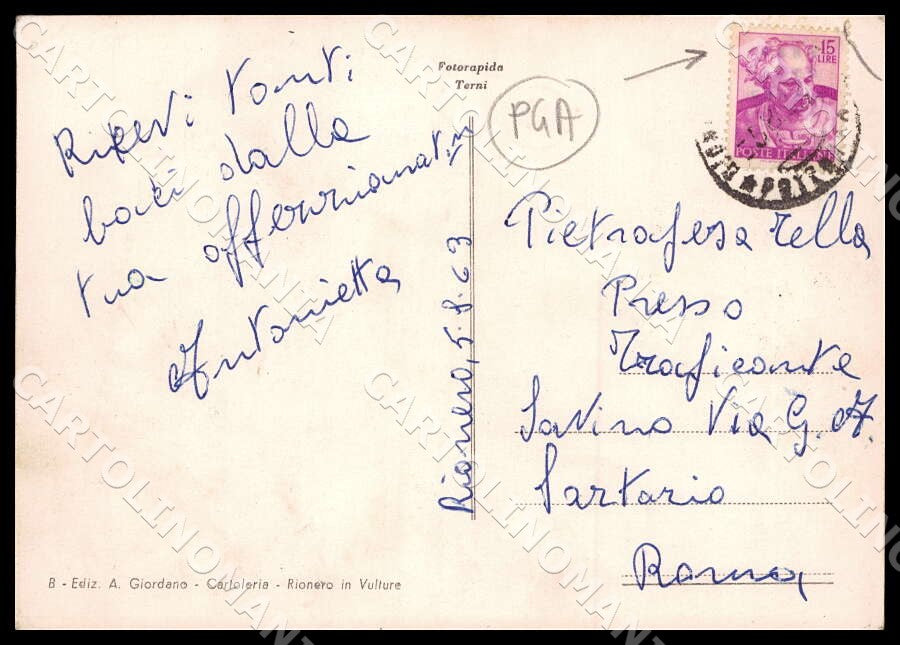 Ricevi tanti
baci dalla
tua affezzionatis
Antonietta
Rionero, 5.8.63
Fotorapida
Terni
PGA
15
LIRE
POSTE ITALIANE
Pietrafesa Lella
Presso
Traficante
Savino Via G. A.
Sartorio
Roma
B - Ediz. A. Giordano - Cartoleria - Rionero in Vulture
CARTOLINOMANIA